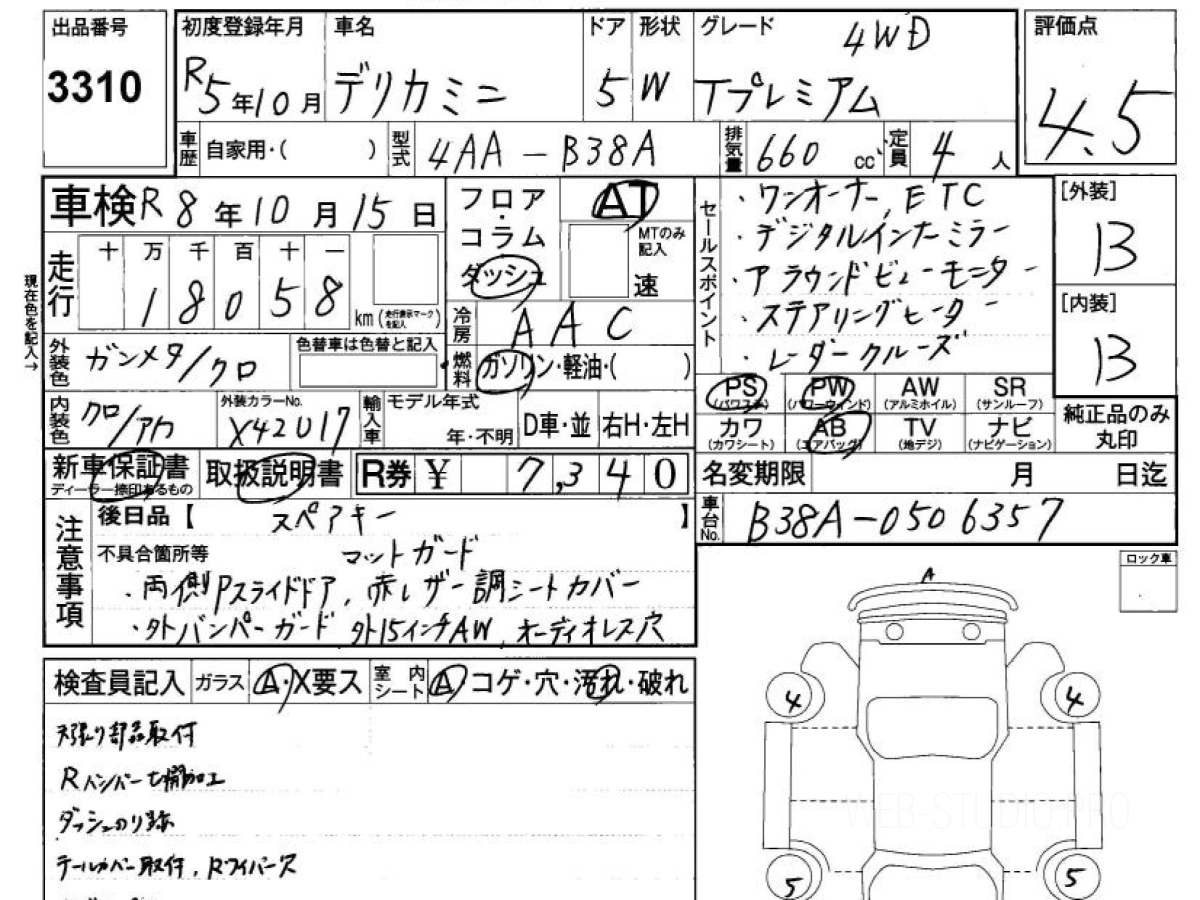 出品番号
3310
初度登録年月
R5年10月
車名
デリカミニ
ドア
5
形状
W
グレード
4WD
Tプレミアム
評価点
4.5
車歴 自家用・( )
型式 4AA-B38A
排気量 660 cc
定員 4人
車検 R8年10月15日
走行
十 万 千 百 十 一
1 8 0 5 8 km (走行表示マークを記入)
現在色を記入→
外装色 ガンメタ/クロ
色替車は色替と記入
内装色 クロ/アカ
外装カラーNo.
X42U17
フロア・コラム
ダッシュ
AT
MTのみ記入
速
冷房 AAC
燃料 ガソリン・軽油・( )
輸入車
モデル年式
年・不明
D車・並
右H・左H
セールスポイント
・ワンオーナー, ETC
・デジタルインナーミラー
・アラウンドビューモニター
・ステアリングヒーター
・レーダークルーズ
[外装]
13
[内装]
13
PS (パワステ)
PW (パワーウィンド)
AW (アルミホイル)
SR (サンルーフ)
カワ (カワシート)
AB (エアバッグ)
TV (地デジ)
ナビ (ナビゲーション)
純正品のみ丸印
新車保証書
ディーラー捺印あるもの
取扱説明書
R券 ¥ 7,340
名変期限 月 日迄
車台No. B38A-0506357
注意事項
後日品【 スペアキー 】
不具合箇所等 マットガード
・両側Pスライドドア, 赤レザー調シートカバー
・外バンパーガード 外15インチAW, オーディオレス穴
ロック車
A
検査員記入
ガラス A・X要ス
室内シート A コゲ・穴・汚れ・破れ
天張り部品取付
Rバンパー七開加工
ダッシュのり跡
テールカバー取付, Rワイパーズ
4
4
5
5
WEB-STUDIO.PRO